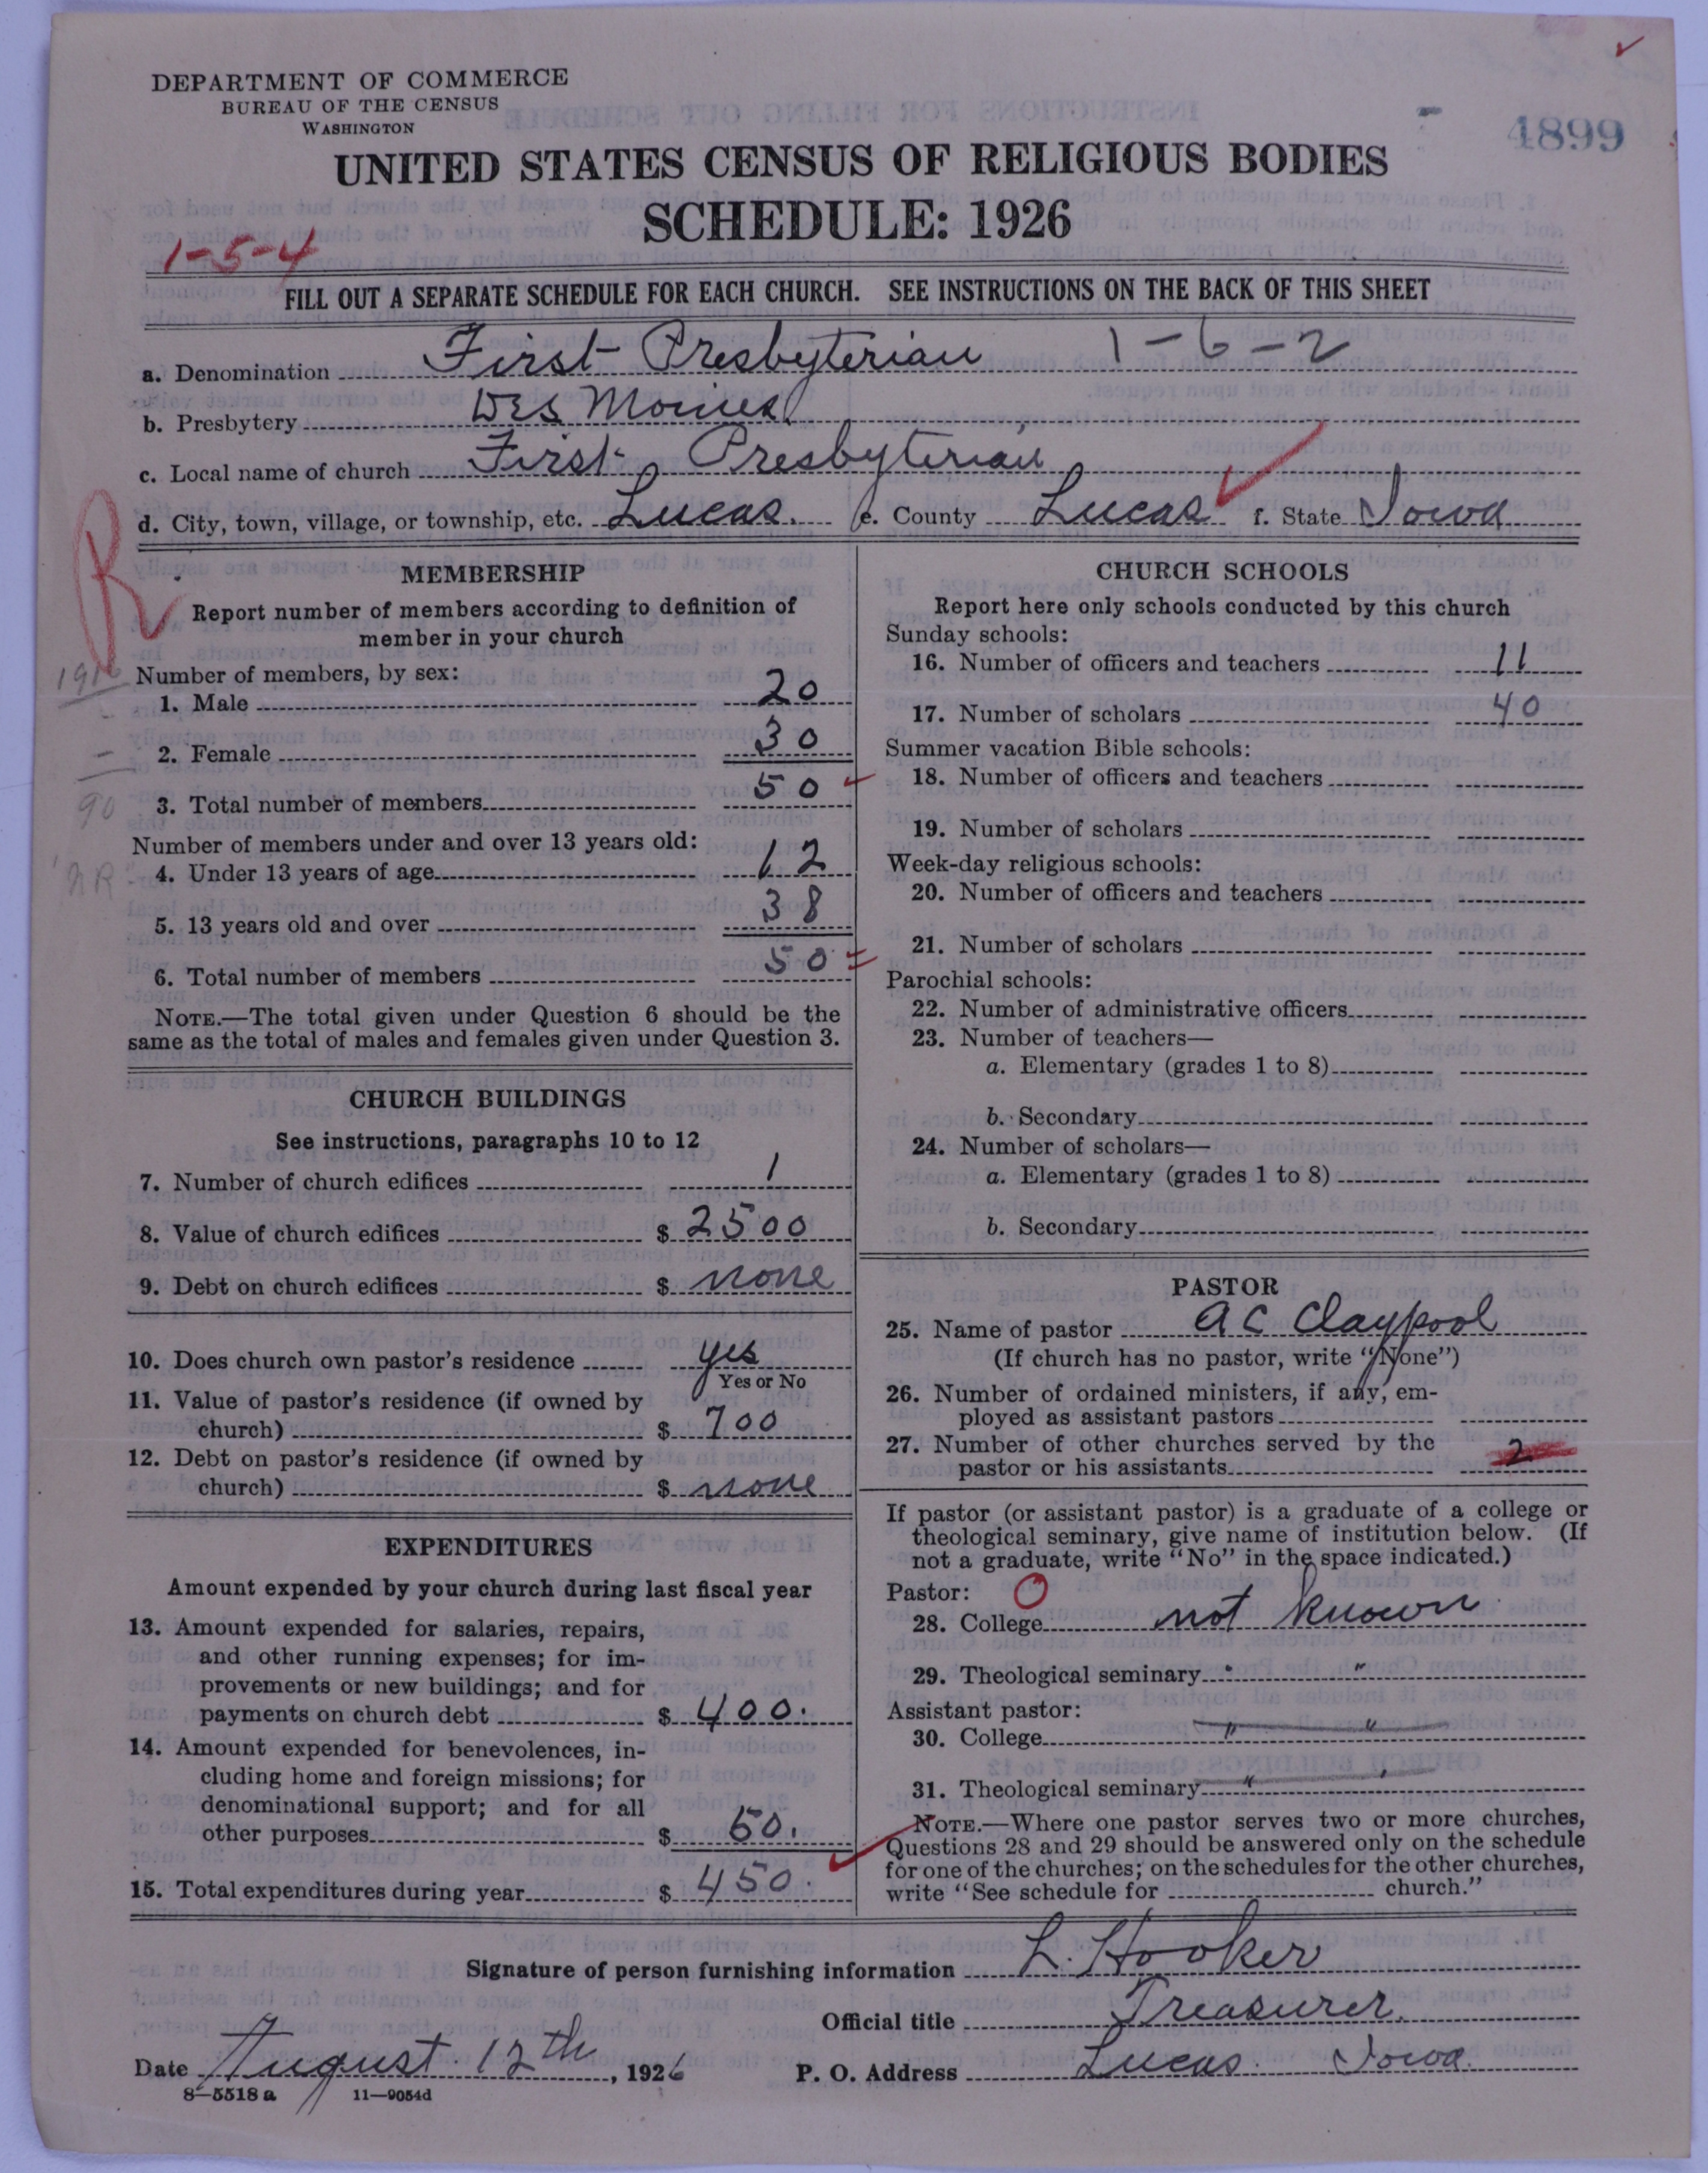 DEPARTMENT OF COMMERCE
BUREAU OF THE CENSUS
WASHINGTON
4899
UNITED STATES CENSUS OF RELIGIOUS BODIES
SCHEDULE: 1926
1-5-4
FILL OUT A SEPARATE SCHEDULE FOR EACH CHURCH. SEE INSTRUCTIONS ON THE BACK OF THIS SHEET
a. Denomination First Presbyterian 1-6-2
b. Presbytery Des Moines
c. Local name of church First Presbyterian
d. City, town, village, or township, etc. Lucas. e. County Lucas f. State Iowa
R
MEMBERSHIP
Report number of members according to definition of
member in your church
1916
Number of members, by sex:
1. Male 20
2. Female 30
3. Total number of members 50
90
Number of members under and over 13 years old:
NR
4. Under 13 years of age 12
5. 13 years old and over 38
6. Total number of members 50
NOTE.—The total given under Question 6 should be the
same as the total of males and females given under Question 3.
CHURCH BUILDINGS
See instructions, paragraphs 10 to 12
7. Number of church edifices 1
8. Value of church edifices $ 2500
9. Debt on church edifices $ none
10. Does church own pastor's residence yes
Yes or No
11. Value of pastor's residence (if owned by
church) $ 700
12. Debt on pastor's residence (if owned by
church) $ none
EXPENDITURES
Amount expended by your church during last fiscal year
13. Amount expended for salaries, repairs,
and other running expenses; for im-
provements or new buildings; and for
payments on church debt $ 400.
14. Amount expended for benevolences, in-
cluding home and foreign missions; for
denominational support; and for all
other purposes $ 50.
15. Total expenditures during year $ 450.
CHURCH SCHOOLS
Report here only schools conducted by this church
Sunday schools:
16. Number of officers and teachers 11
17. Number of scholars 40
Summer vacation Bible schools:
18. Number of officers and teachers
19. Number of scholars
Week-day religious schools:
20. Number of officers and teachers
21. Number of scholars
Parochial schools:
22. Number of administrative officers
23. Number of teachers—
a. Elementary (grades 1 to 8)
b. Secondary
24. Number of scholars—
a. Elementary (grades 1 to 8)
b. Secondary
PASTOR
25. Name of pastor A C Claypool
(If church has no pastor, write "None")
26. Number of ordained ministers, if any, em-
ployed as assistant pastors
27. Number of other churches served by the
pastor or his assistants 2
If pastor (or assistant pastor) is a graduate of a college or
theological seminary, give name of institution below. (If
not a graduate, write "No" in the space indicated.)
Pastor: O
28. College not known
29. Theological seminary " "
Assistant pastor:
30. College " "
31. Theological seminary " "
NOTE.—Where one pastor serves two or more churches,
Questions 28 and 29 should be answered only on the schedule
for one of the churches; on the schedules for the other churches,
write "See schedule for church."
Signature of person furnishing information L. Hooker
Official title Treasurer.
Date August 12th, 1926 P. O. Address Lucas. Iowa.
8-5518 a 11-9054d